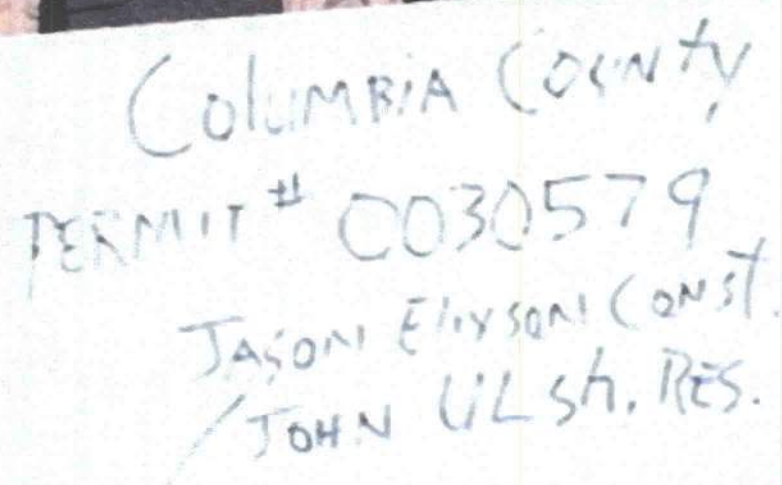 Columbia County
PERMIT # 0030579
JASON Elixson CONST.
/JOHN ULsh. RES.